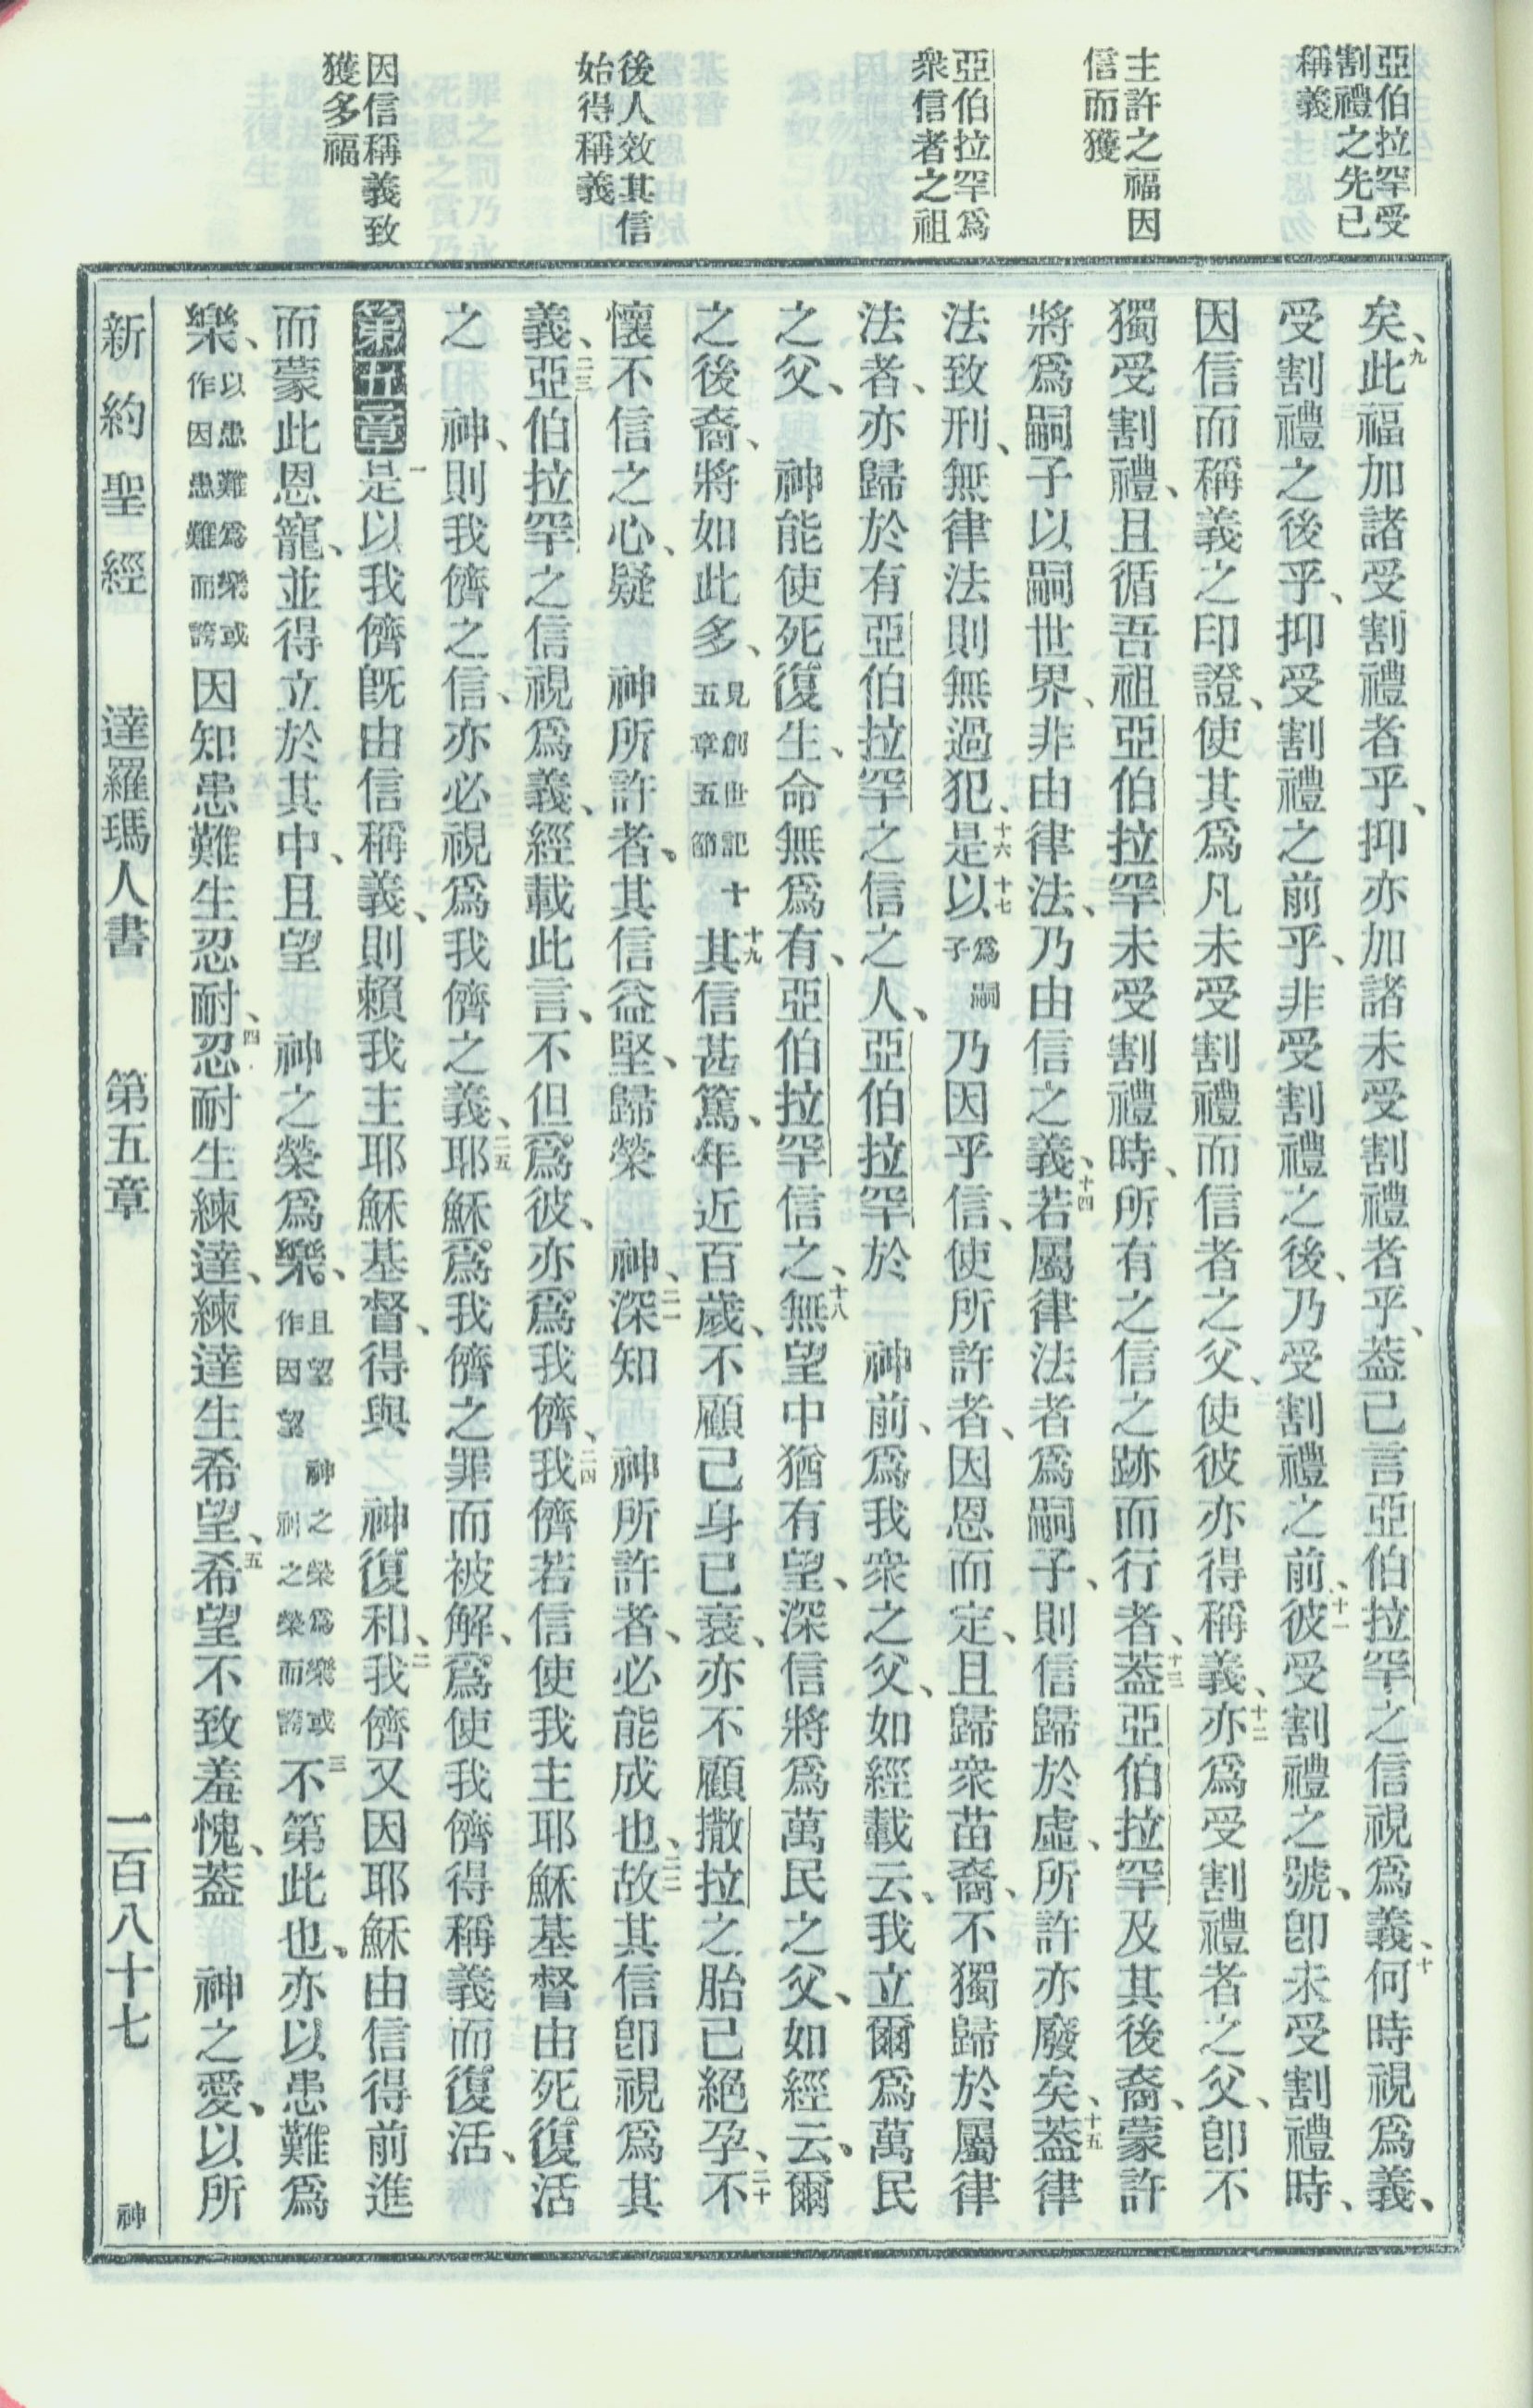 亞伯拉罕受
割禮之先已
稱義
主許之福因
信而獲
亞伯拉罕爲
衆信者之祖
後人效其信
始得稱義
因信稱義致
獲多福
矣、九此福加諸受割禮者乎、抑亦加諸未受割禮者乎、葢已言亞伯拉罕之信視爲義、十何時視爲義、
受割禮之後乎、抑受割禮之前乎、非受割禮之後、乃受割禮之前、十一彼受割禮之號、卽未受割禮時、
因信而稱義之印證、使其爲凡未受割禮而信者之父、使彼亦得稱義、十二亦爲受割禮者之父、卽不
獨受割禮、且循吾祖亞伯拉罕未受割禮時、所有之信之跡而行者、十三葢亞伯拉罕及其後裔、蒙許
將爲嗣子以嗣世界、非由律法、乃由信之義、十四若屬律法者爲嗣子、則信歸於虛、所許亦廢矣、十五葢律
法致刑、無律法則無過犯、十六是以十七爲嗣子乃因乎信、使所許者、因恩而定、且歸衆苗裔、不獨歸於屬律
法者、亦歸於有亞伯拉罕之信之人、亞伯拉罕於 神前、爲我衆之父、如經載云、我立爾爲萬民
之父、 神能使死復生、命無爲有、亞伯拉罕信之、十八無望中猶有望、深信將爲萬民之父、如經云、爾
之後裔、將如此多、見創世記十五章五節十九其信甚篤、年近百歲、不顧己身已衰、亦不顧撒拉之胎已絕孕、二十不
懷不信之心、疑 神所許者、其信益堅、歸榮 神、二一深知 神所許者、必能成也、二二故其信卽視爲其
義、二三亞伯拉罕之信視爲義、經載此言、不但爲彼、亦爲我儕、二四我儕若信使我主耶穌基督由死復活
之 神、則我儕之信、亦必視爲我儕之義、二五耶穌爲我儕之罪而被解、爲使我儕得稱義而復活、
第五章 一是以我儕旣由信稱義、則賴我主耶穌基督、得與 神復和、二我儕又因耶穌由信得前進
而蒙此恩寵、並得立於其中、且望 神之榮爲樂、且望 神之榮爲樂或作因望 神之榮而誇三不第此也、亦以患難爲
樂、以患難爲樂或作因患難而誇因知患難生忍耐、四忍耐生練達、練達生希望、五希望不致羞愧、葢 神之愛、以所
新約聖經 達羅瑪人書 第五章 一百八十七 神